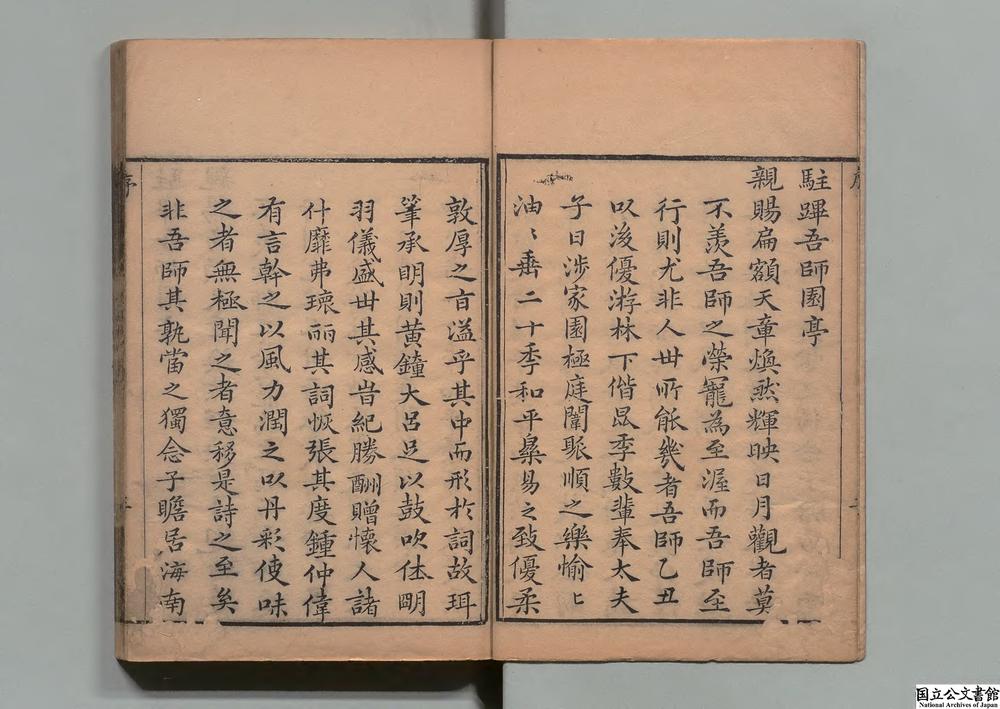 駐蹕吾師園亭
親賜扁額天章煥然輝映日月觀者莫
不羨吾師之榮寵為至渥而吾師至
行則尤非人世所能幾者吾師乙丑
以後優游林下偕昆季數輩奉太夫
子日涉家園極庭闈聚順之樂愉〻
油〻垂二十季和平樂易之致優柔
敦厚之旨溢乎其中而形於詞故珥
筆承明則黃鐘大呂足以鼓吹休明
羽儀盛世其感昔紀勝酬贈懷人諸
什靡弗瓌丽其詞恢張其度鍾仲偉
有言幹之以風力潤之以丹彩使味
之者無極聞之者意移是詩之至矣
非吾師其孰當之獨念子瞻居海南
序
国立公文書館
National Archives of Japan